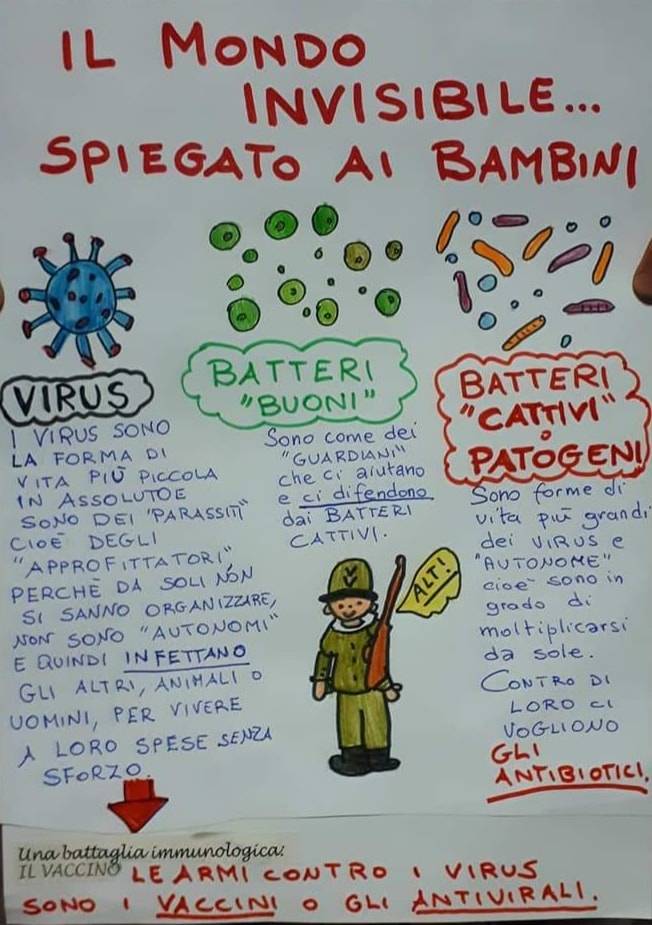 IL MONDO
INVISIBILE...
SPIEGATO AI BAMBINI
VIRUS
I VIRUS SONO
LA FORMA DI
VITA PIÙ PICCOLA
IN ASSOLUTO E
SONO DEI "PARASSITI"
CIOÈ DEGLI
"APPROFITTATORI",
PERCHÈ DA SOLI NON
SI SANNO ORGANIZZARE,
NON SONO "AUTONOMI"
E QUINDI INFETTANO
GLI ALTRI, ANIMALI O
UOMINI, PER VIVERE
A LORO SPESE SENZA
SFORZO.
BATTERI
"BUONI"
Sono come dei
"GUARDIANI"
che ci aiutano
e ci difendono
dai BATTERI
CATTIVI.
ALT!
BATTERI
"CATTIVI"
o
PATOGENI
Sono forme di
vita più grandi
dei VIRUS e
"AUTONOME"
cioè sono in
grado di
moltiplicarsi
da sole.
CONTRO DI
LORO CI
VOGLIONO
GLI
ANTIBIOTICI.
Una battaglia immunologica:
IL VACCINO
LE ARMI CONTRO I VIRUS
SONO I VACCINI O GLI ANTIVIRALI.